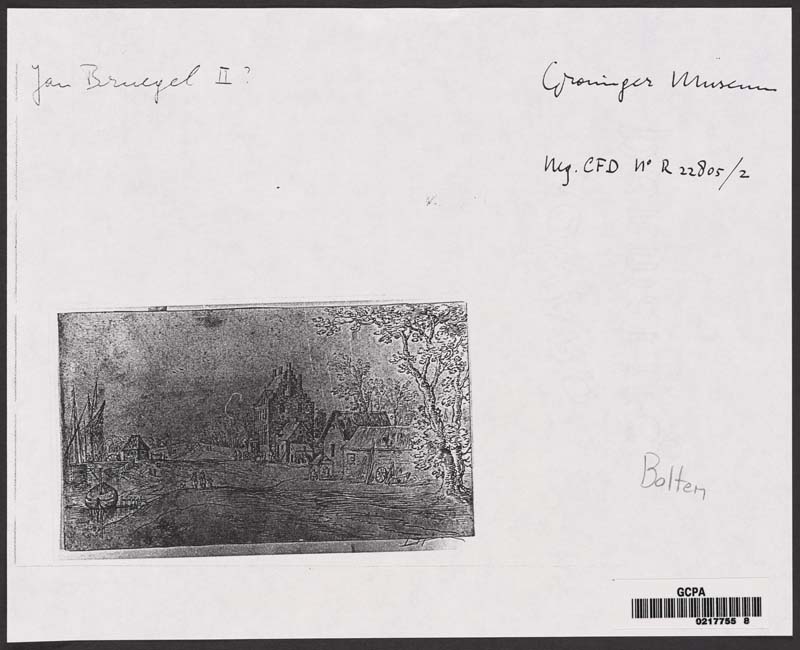 Jan Bruegel II?
Groninger Museum
Neg. CFD N° R 22805/2
Bolten
GCPA
0217755 8